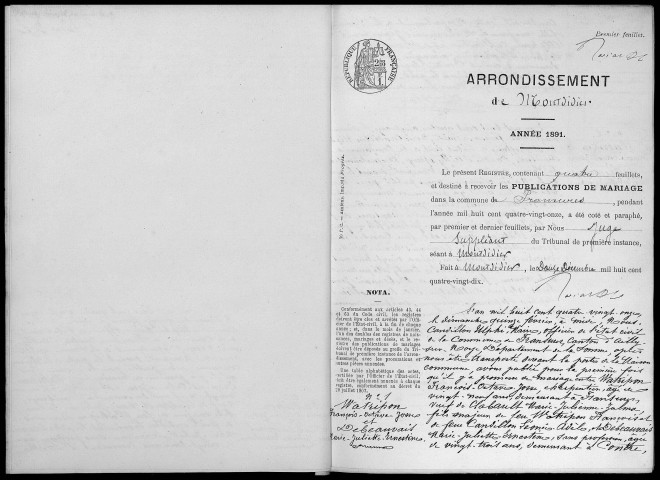 Premier feuillet.
RÉPUBLIQUE FRANÇAISE
ARRONDISSEMENT
de Montdidier
ANNÉE 1891.
Le présent REGISTRE, contenant quatre feuillets,
et destiné à recevoir les PUBLICATIONS DE MARIAGE
dans la commune de Fransures, pendant
l'année mil huit cent quatre-vingt-onze, a été coté et paraphé,
par premier et dernier feuillets, par Nous Juge
Suppléant du Tribunal de première instance,
séant à Montdidier
Fait à Montdidier, le Douze Décembre mil huit cent
quatre-vingt-dix.
NOTA.
Conformément aux articles 40, 44
et 63 du Code civil, les registres
doivent être clos et arrêtés par l'Offi-
cier de l'État-civil, à la fin de chaque
année; et, dans le mois de janvier,
l'un des doubles des registres de nais-
sances, mariages et décès, et le re-
gistre des publications de mariages
doivent être déposés au greffe du Tri-
bunal de première instance de l'arron-
dissement, avec les procurations et
autres pièces annexées.
Une table alphabétique des actes,
certifiée par l'Officier de l'État-civil,
sera également annexée à chaque
registre, conformément au décret du
20 juillet 1807.
N° 1
Watripon
François-Octave Josse
et
Debeauvais
Marie-Juliette-Ernestine
L'an mil huit cent quatre vingt onze
le dimanche quinze février à midi, Nous,
Candillon Ulphi-Marie, officier de l'état civil
de la Commune de Fransures, Canton d'Ailly-
sur-Noye, Département de la Somme, après
nous être transporté devant la porte de la Maison
commune, avons publié pour la première fois
qu'il y a promesse de mariage entre Watripon
François-Octave Josse, âgé de
vingt-neuf ans, demeurant à Fransures,
veuf de Clabault Marie-Julienne-Zulma
fils majeur de feu Watripon François et
de feue Candillon et Debeauvais
Marie-Juliette-Ernestine, sans profession, âgée
de vingt-trois ans, demeurant à Contre,